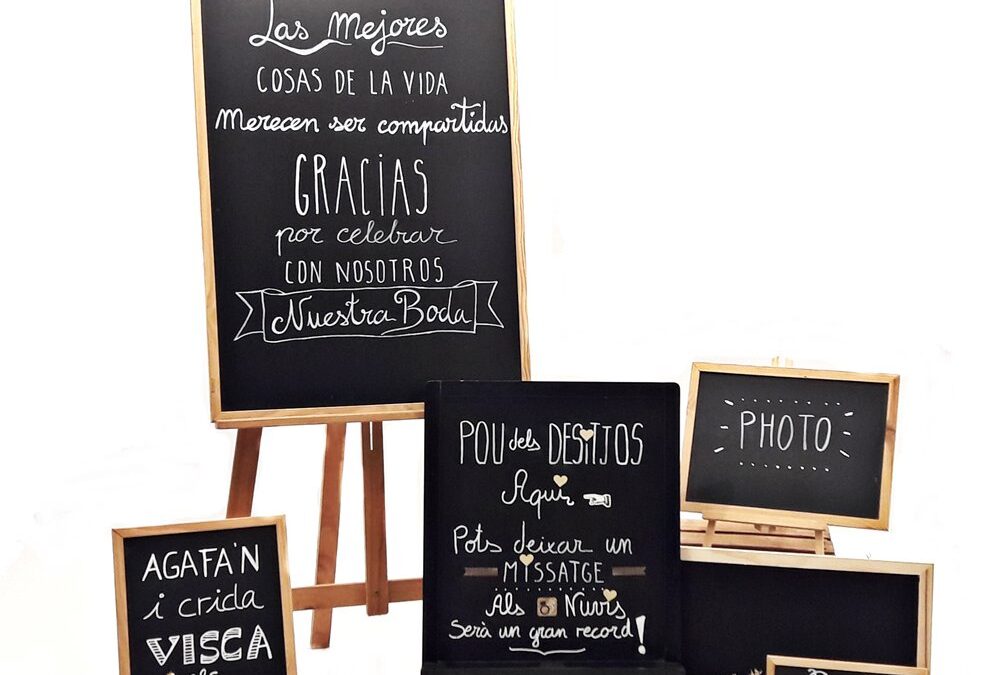 Las Mejores
COSAS DE LA VIDA
Merecen ser compartidas
GRACIAS
por celebrar
CON NOSOTROS
Nuestra Boda
POU dels DESITJOS
Aquí
Pots deixar un
MISSATGE
Als Nuvis
Serà un gran record!
PHOTO
AGAFA'N
i crida
VISCA